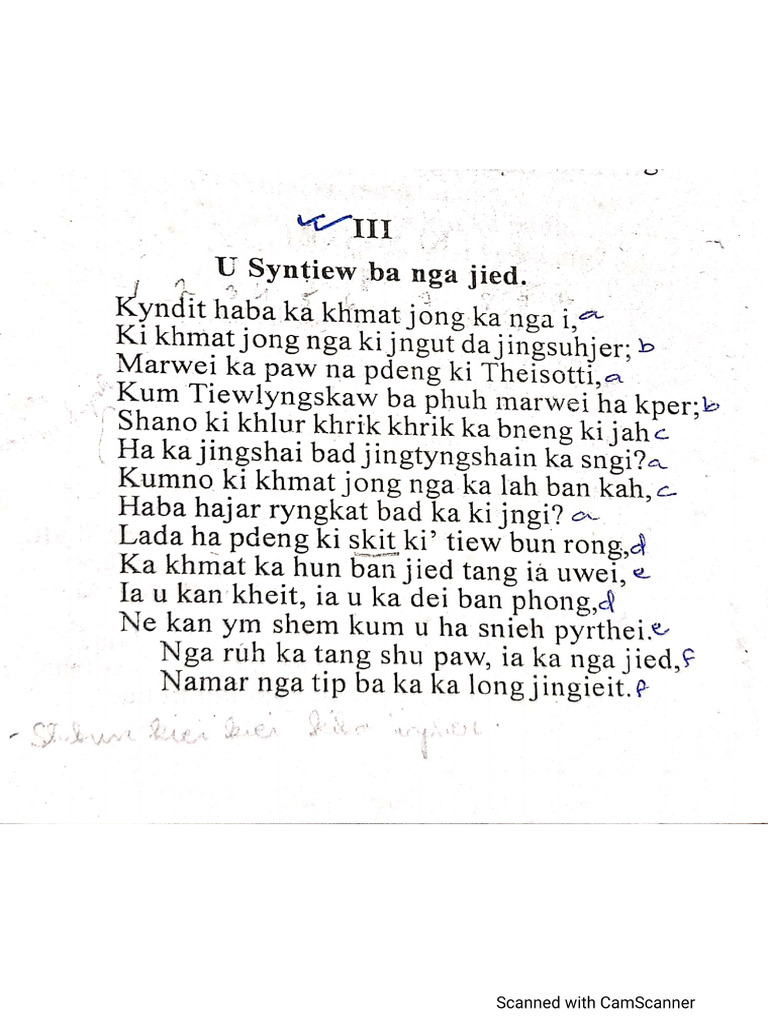 III
U Syntiew ba nga jied.
1 2 3
Kyndit haba ka khmat jong ka nga i, a
Ki khmat jong nga ki jngut da jingsuhjer; b
Marwei ka paw na pdeng ki Theisotti, a
Kum Tiewlyngskaw ba phuh marwei ha kper; b
Shano ki khlur khrik khrik ka bneng ki jah c
Ha ka jingshai bad jingtyngshain ka sngi? a
Kumno ki khmat jong nga ka lah ban kah, c
Haba hajar ryngkat bad ka ki jngi? a
Lada ha pdeng ki skit ki’ tiew bun rong, d
Ka khmat ka hun ban jied tang ia uwei, e
Ia u kan kheit, ia u ka dei ban phong, d
Ne kan ym shem kum u ha snieh pyrthei. e
Nga ruh ka tang shu paw, ia ka nga jied, f
Namar nga tip ba ka ka long jingieit. f
kiei kiei
Scanned with CamScanner